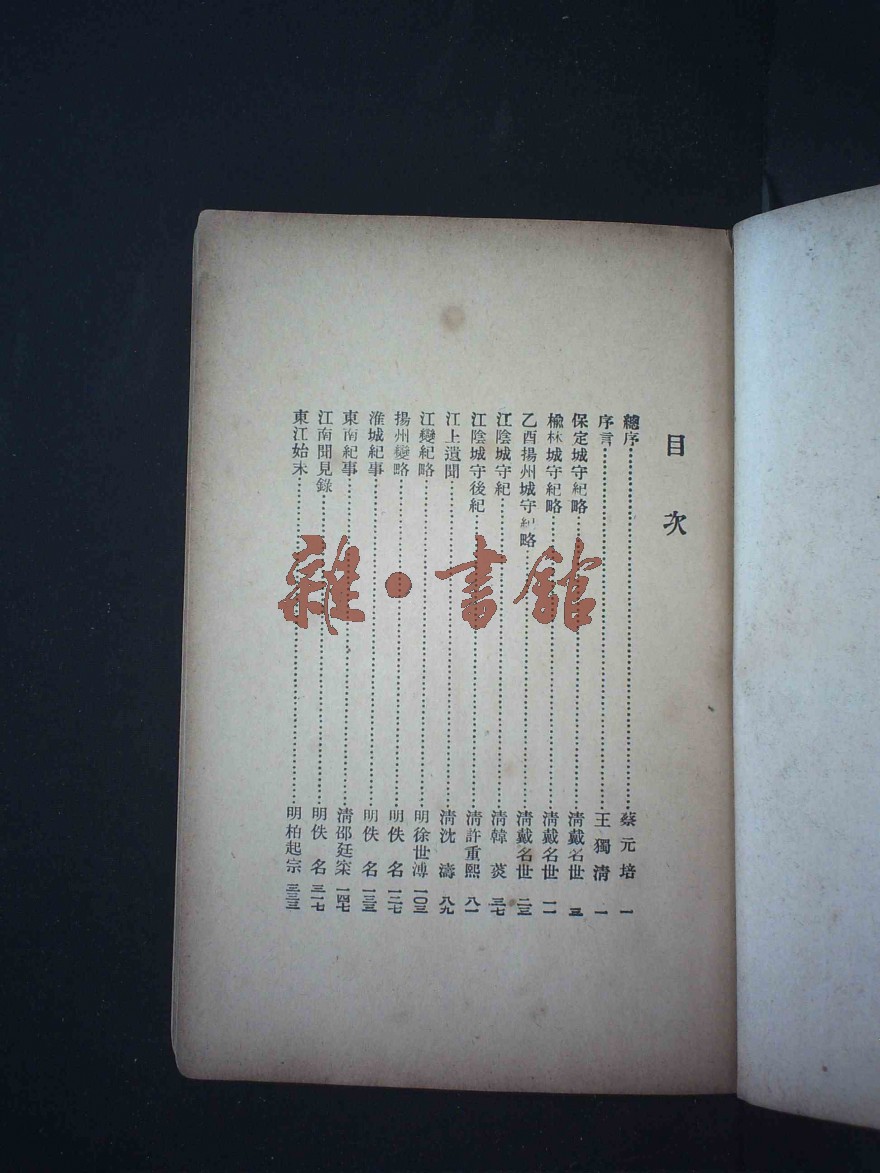 目次
總序 蔡元培 一
序言 王獨清 一
保定城守紀略 清戴名世 三
楡林城守紀略 清戴名世 一一
乙酉揚州城守紀略 清戴名世 二三
江陰城守紀 清韓菼 三七
江陰城守後紀 清許重熙 八一
江上遺聞 清沈濤 八九
江變紀略 明徐世溥 一〇三
揚州變略 明佚名 一二七
淮城紀事 明佚名 一三三
東南紀事 清邵廷寀 一四七
江南聞見錄 明佚名 三一七
東江始末 明柏起宗 三三三
雜·書館